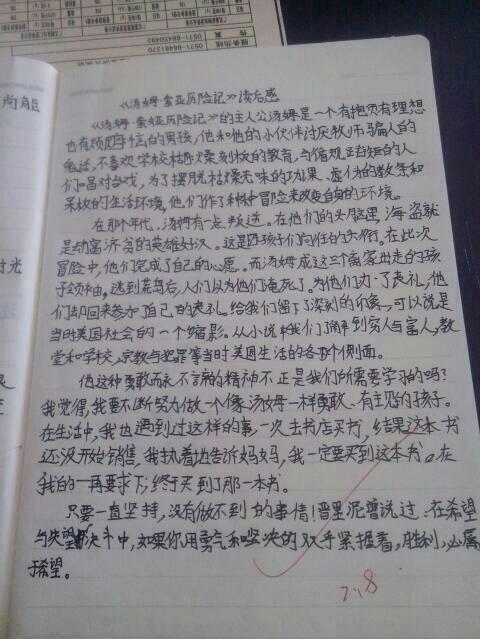 《汤姆·索亚历险记》读后感
《汤姆·索亚历险记》的主人公汤姆是一个有抱负有理想
也有烦恼的男孩，他和他的小伙伴讨厌牧师骗人的
鬼话，不喜欢学校枯燥刻板的教育，与循规正当的人
们唱对台戏，为了摆脱枯燥无味的功课、虚伪的教条和
呆板的生活环境，他们作了种种冒险来改变自身的环境。
在那个年代，汤姆有一点叛逆。在他们的头脑里，海盗就
是劫富济贫的英雄好汉。这是孩子们向往的大侠。在此次
冒险中，他们完成了自己的心愿。而汤姆成这三个离家出走的孩
子领袖。逃到荒岛后，人们以为他们淹死了。为他们办了丧礼，他
们却回来参加了自己的丧礼。给我们留下了深刻的印象，可以说是
当时美国社会的一个缩影。从小说中我们了解到穷人与富人，教
堂和学校，宗教与犯罪等当时美国生活的各个侧面。
他这种勇敢而永不言弃的精神不正是我们所需要学习的吗？
我觉得，我要不断努力做一个像汤姆一样勇敢、有主见的孩子。
在生活中，我也遇到过这样的事，一次去书店买书，结果这本书
还没开始销售，我执着地告诉妈妈，我一定要买到这本书。在
我的一再要求下，终于买到了那一本书。
只要一直坚持，没有做不到的事情！普里尼曾说过：在希望
与失望的决斗中，如果你用勇气和坚决的双手紧握着，胜利，必属
于希望。
7.8